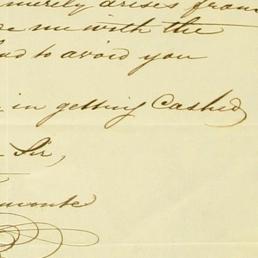 merely arises from
me with the
to avoid you
in getting Cashed
Sir,